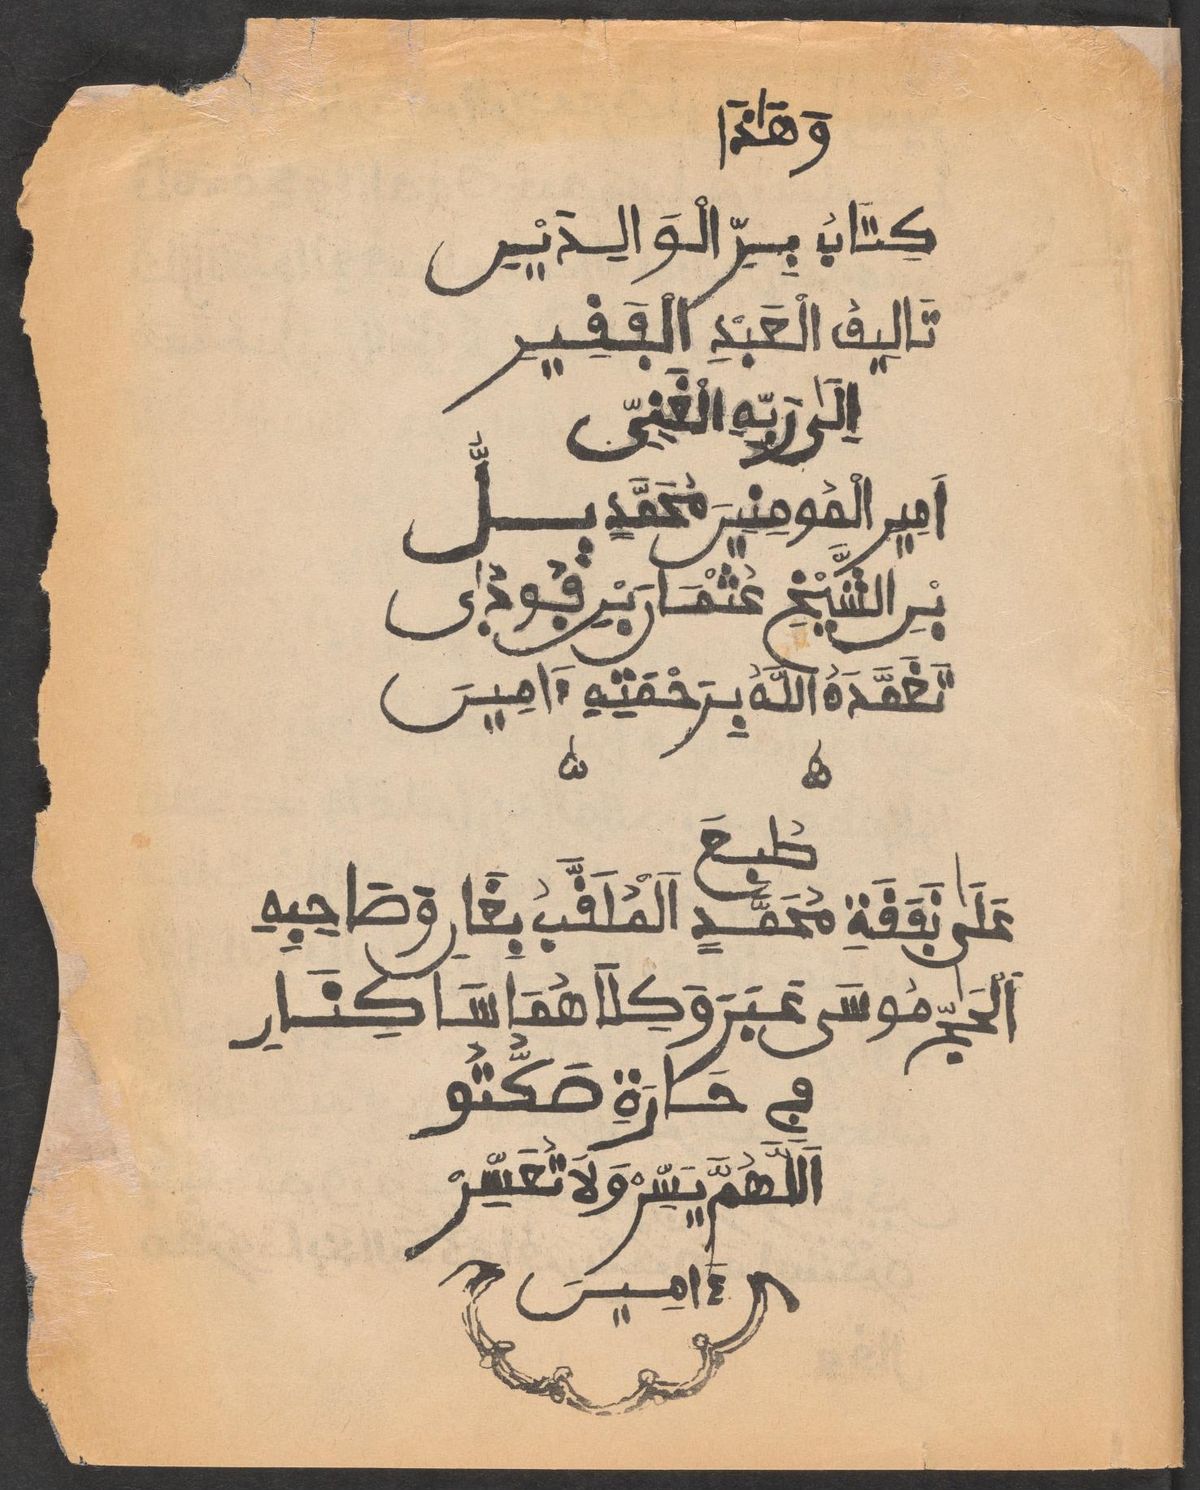 وَهَٰذَا
كِتَابُ بِرِّ الْوَالِدَيْنِ
تَالِيفُ الْعَبْدِ الْفَقِيرِ
اِلَىٰ رَبِّهِ الْغَنِيِّ
اَمِيرِ الْمُومِنِينَ مُحَمَّدٍ بَلُّ
بْنِ الشَّيْخِ عُثْمَانَ بْنِ فُودِيَ
تَغَمَّدَهُ اللَّهُ بِرَحْمَتِهِ ءَامِينَ
طُبِعَ
عَلَىٰ نَفَقَةِ مُحَمَّدٍ اَلْمُلَقَّبُ بِغَارِ وَصَاحِبِهِ
اَلْحَاجِّ مُوسَىٰ عَبَرَ وَكِلَاهُمَا سَاكِنَارِ
فِي حَارَةِ صَكَّتُو
اَللَّهُمَّ يَسِّرْ وَلَا تُعَسِّرْ
ءَامِينَ